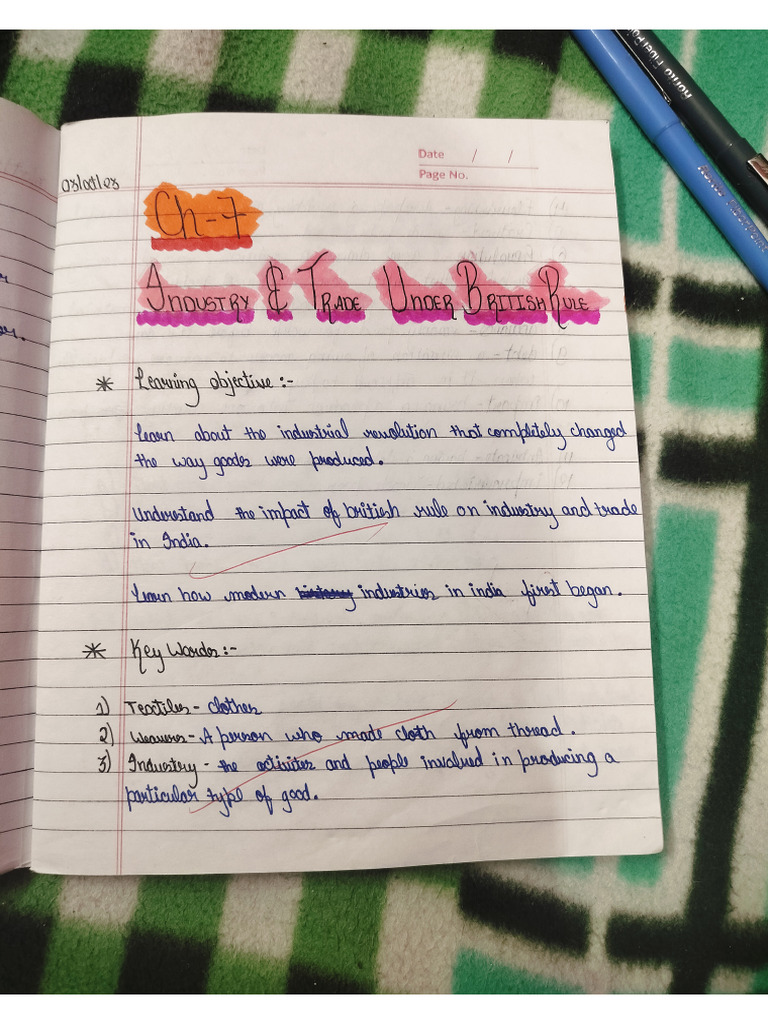 Date / /
Page No.
Ch-7
INDUSTRY & TRADE UNDER BRITISH RULE
* Learning objective :-
Learn about the industrial revolution that completely changed
the way goods were produced.
Understand the impact of british rule on industry and trade
in India.
Learn how modern industries in india first began.
* Key Words :-
1) Textiles - clothes
2) Weavers - A person who made cloth from thread.
3) Industry - the activites and people involved in producing a
particular type of good.